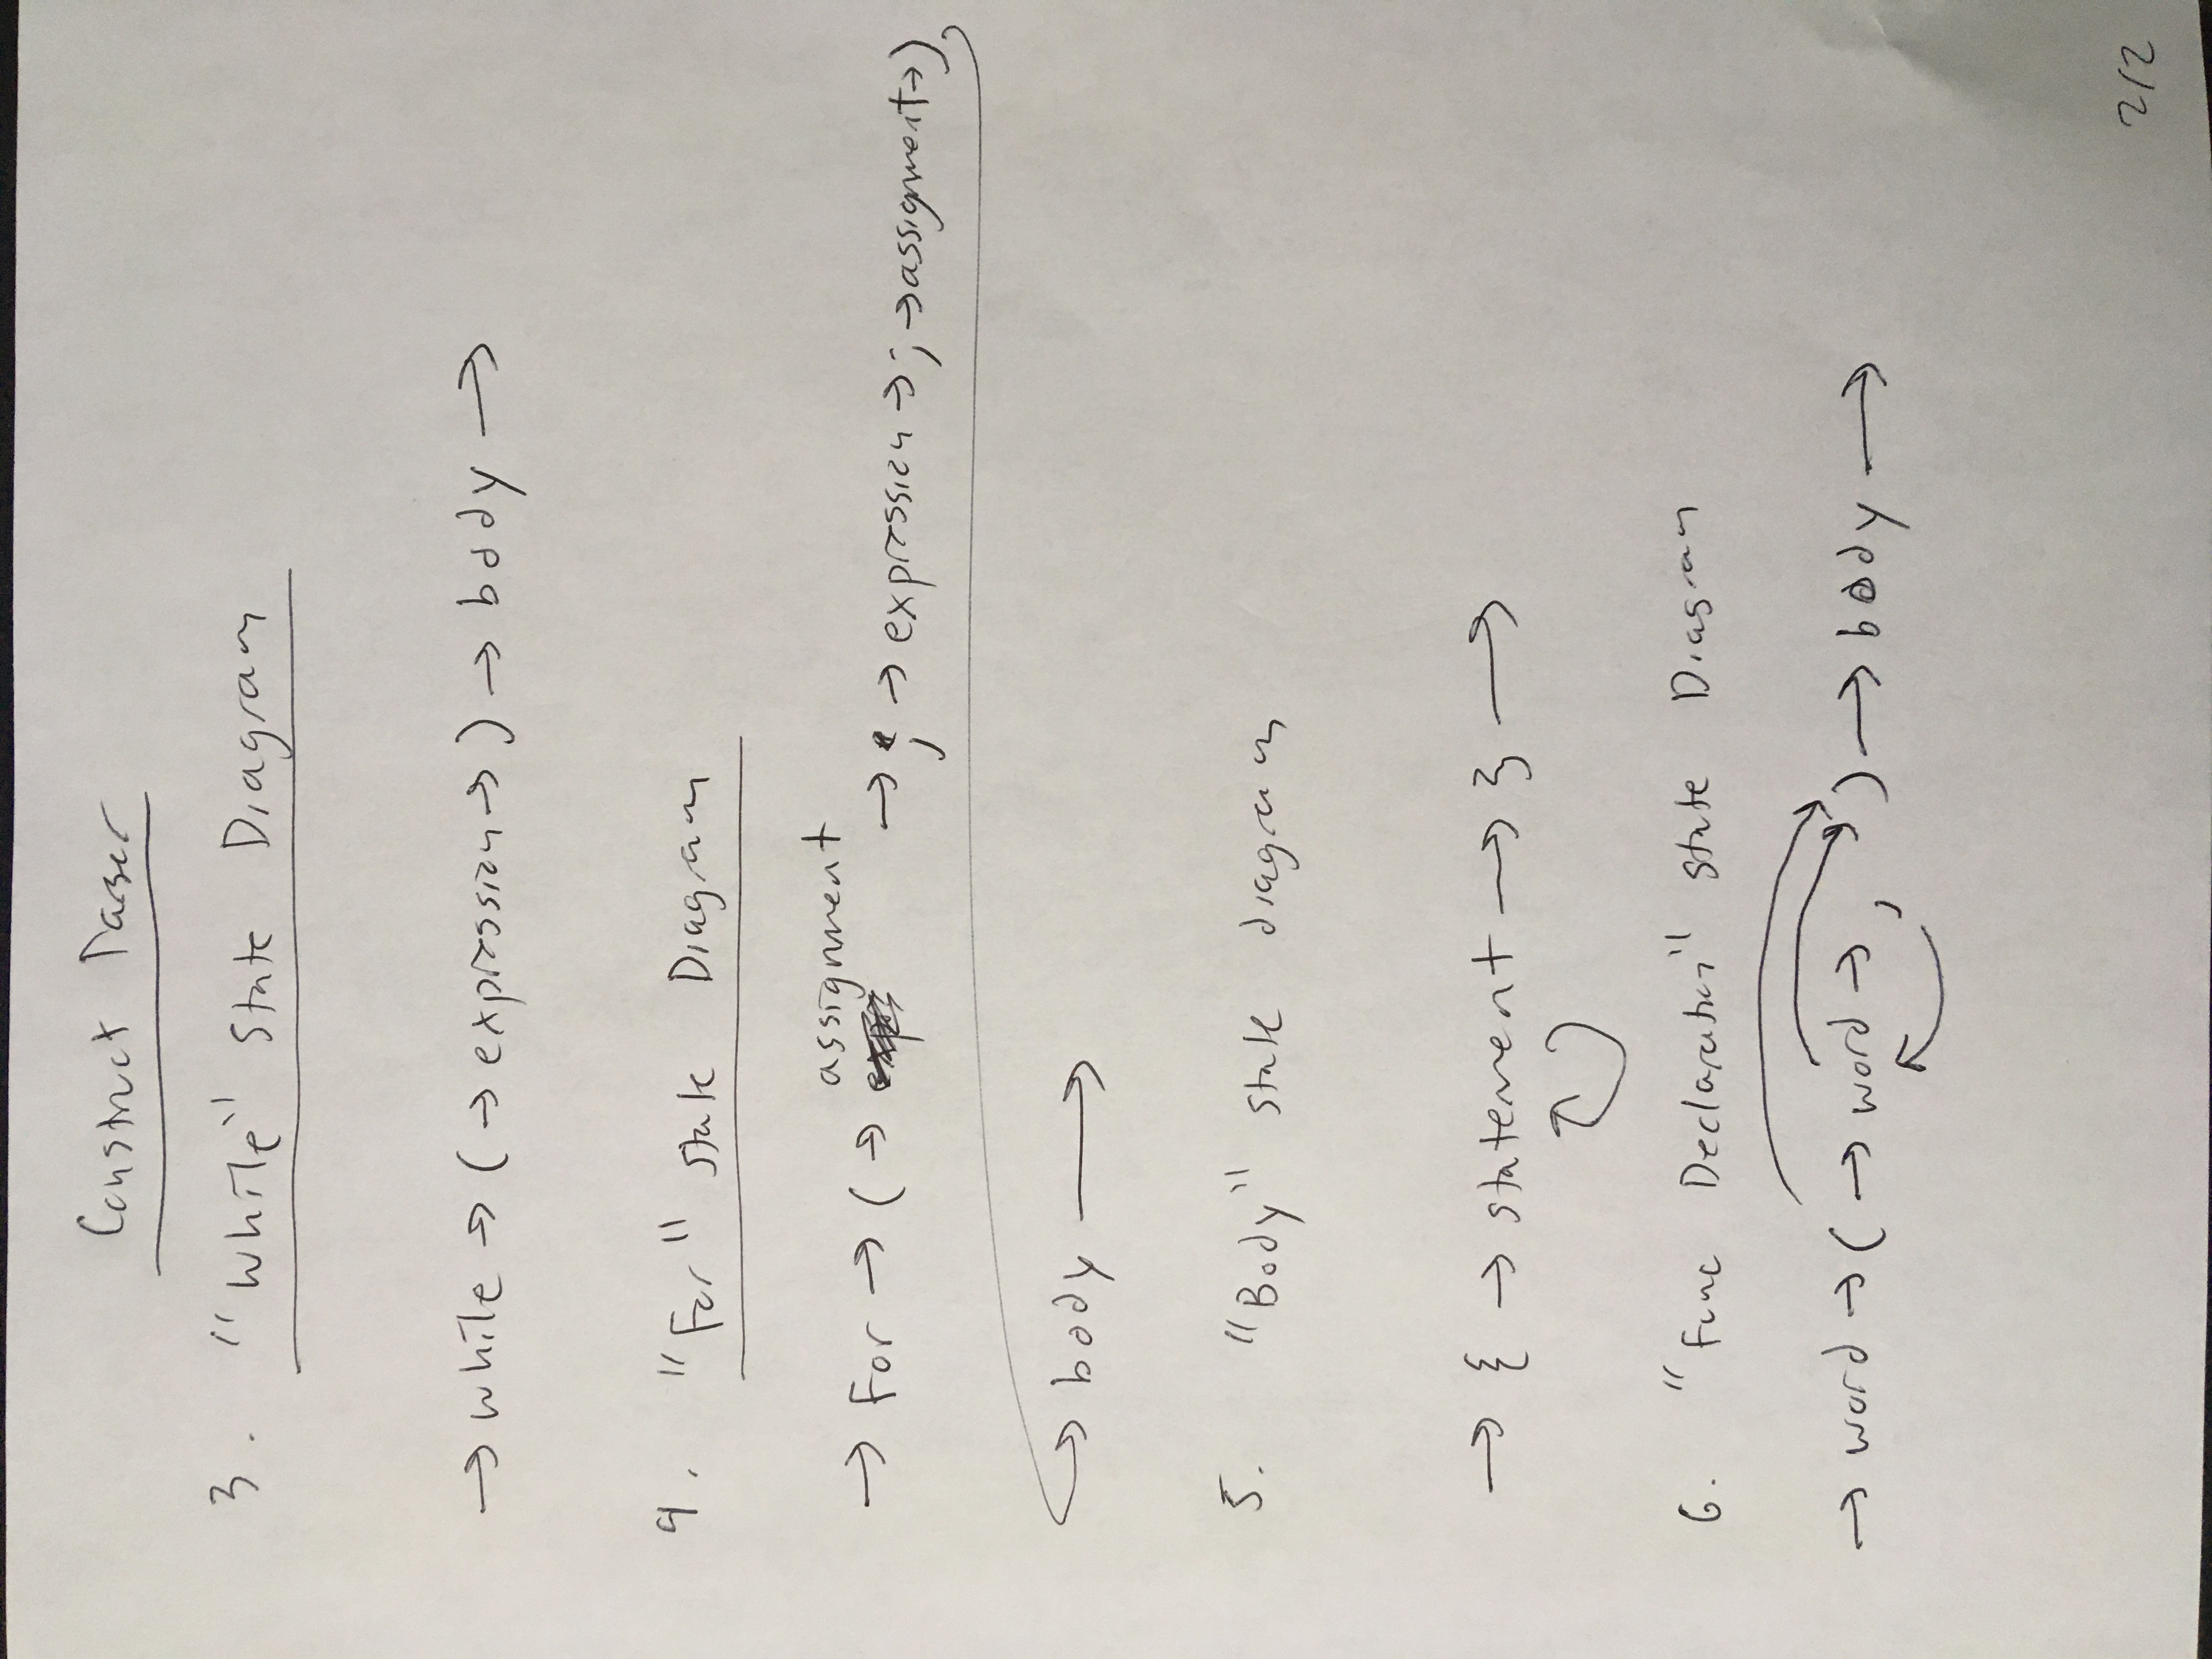 Construct Parser
3. "While" State Diagram
→ while → ( → expression → ) → body →
4. "For" State Diagram
assignment
→ For → ( → → ; → expression → ; → assignment → )
→ body →
5. "Body" state diagram
→ { → statement → } →
6. "Func Declaration" state Diagram
→ word → ( → word → , ) → body →
2/2